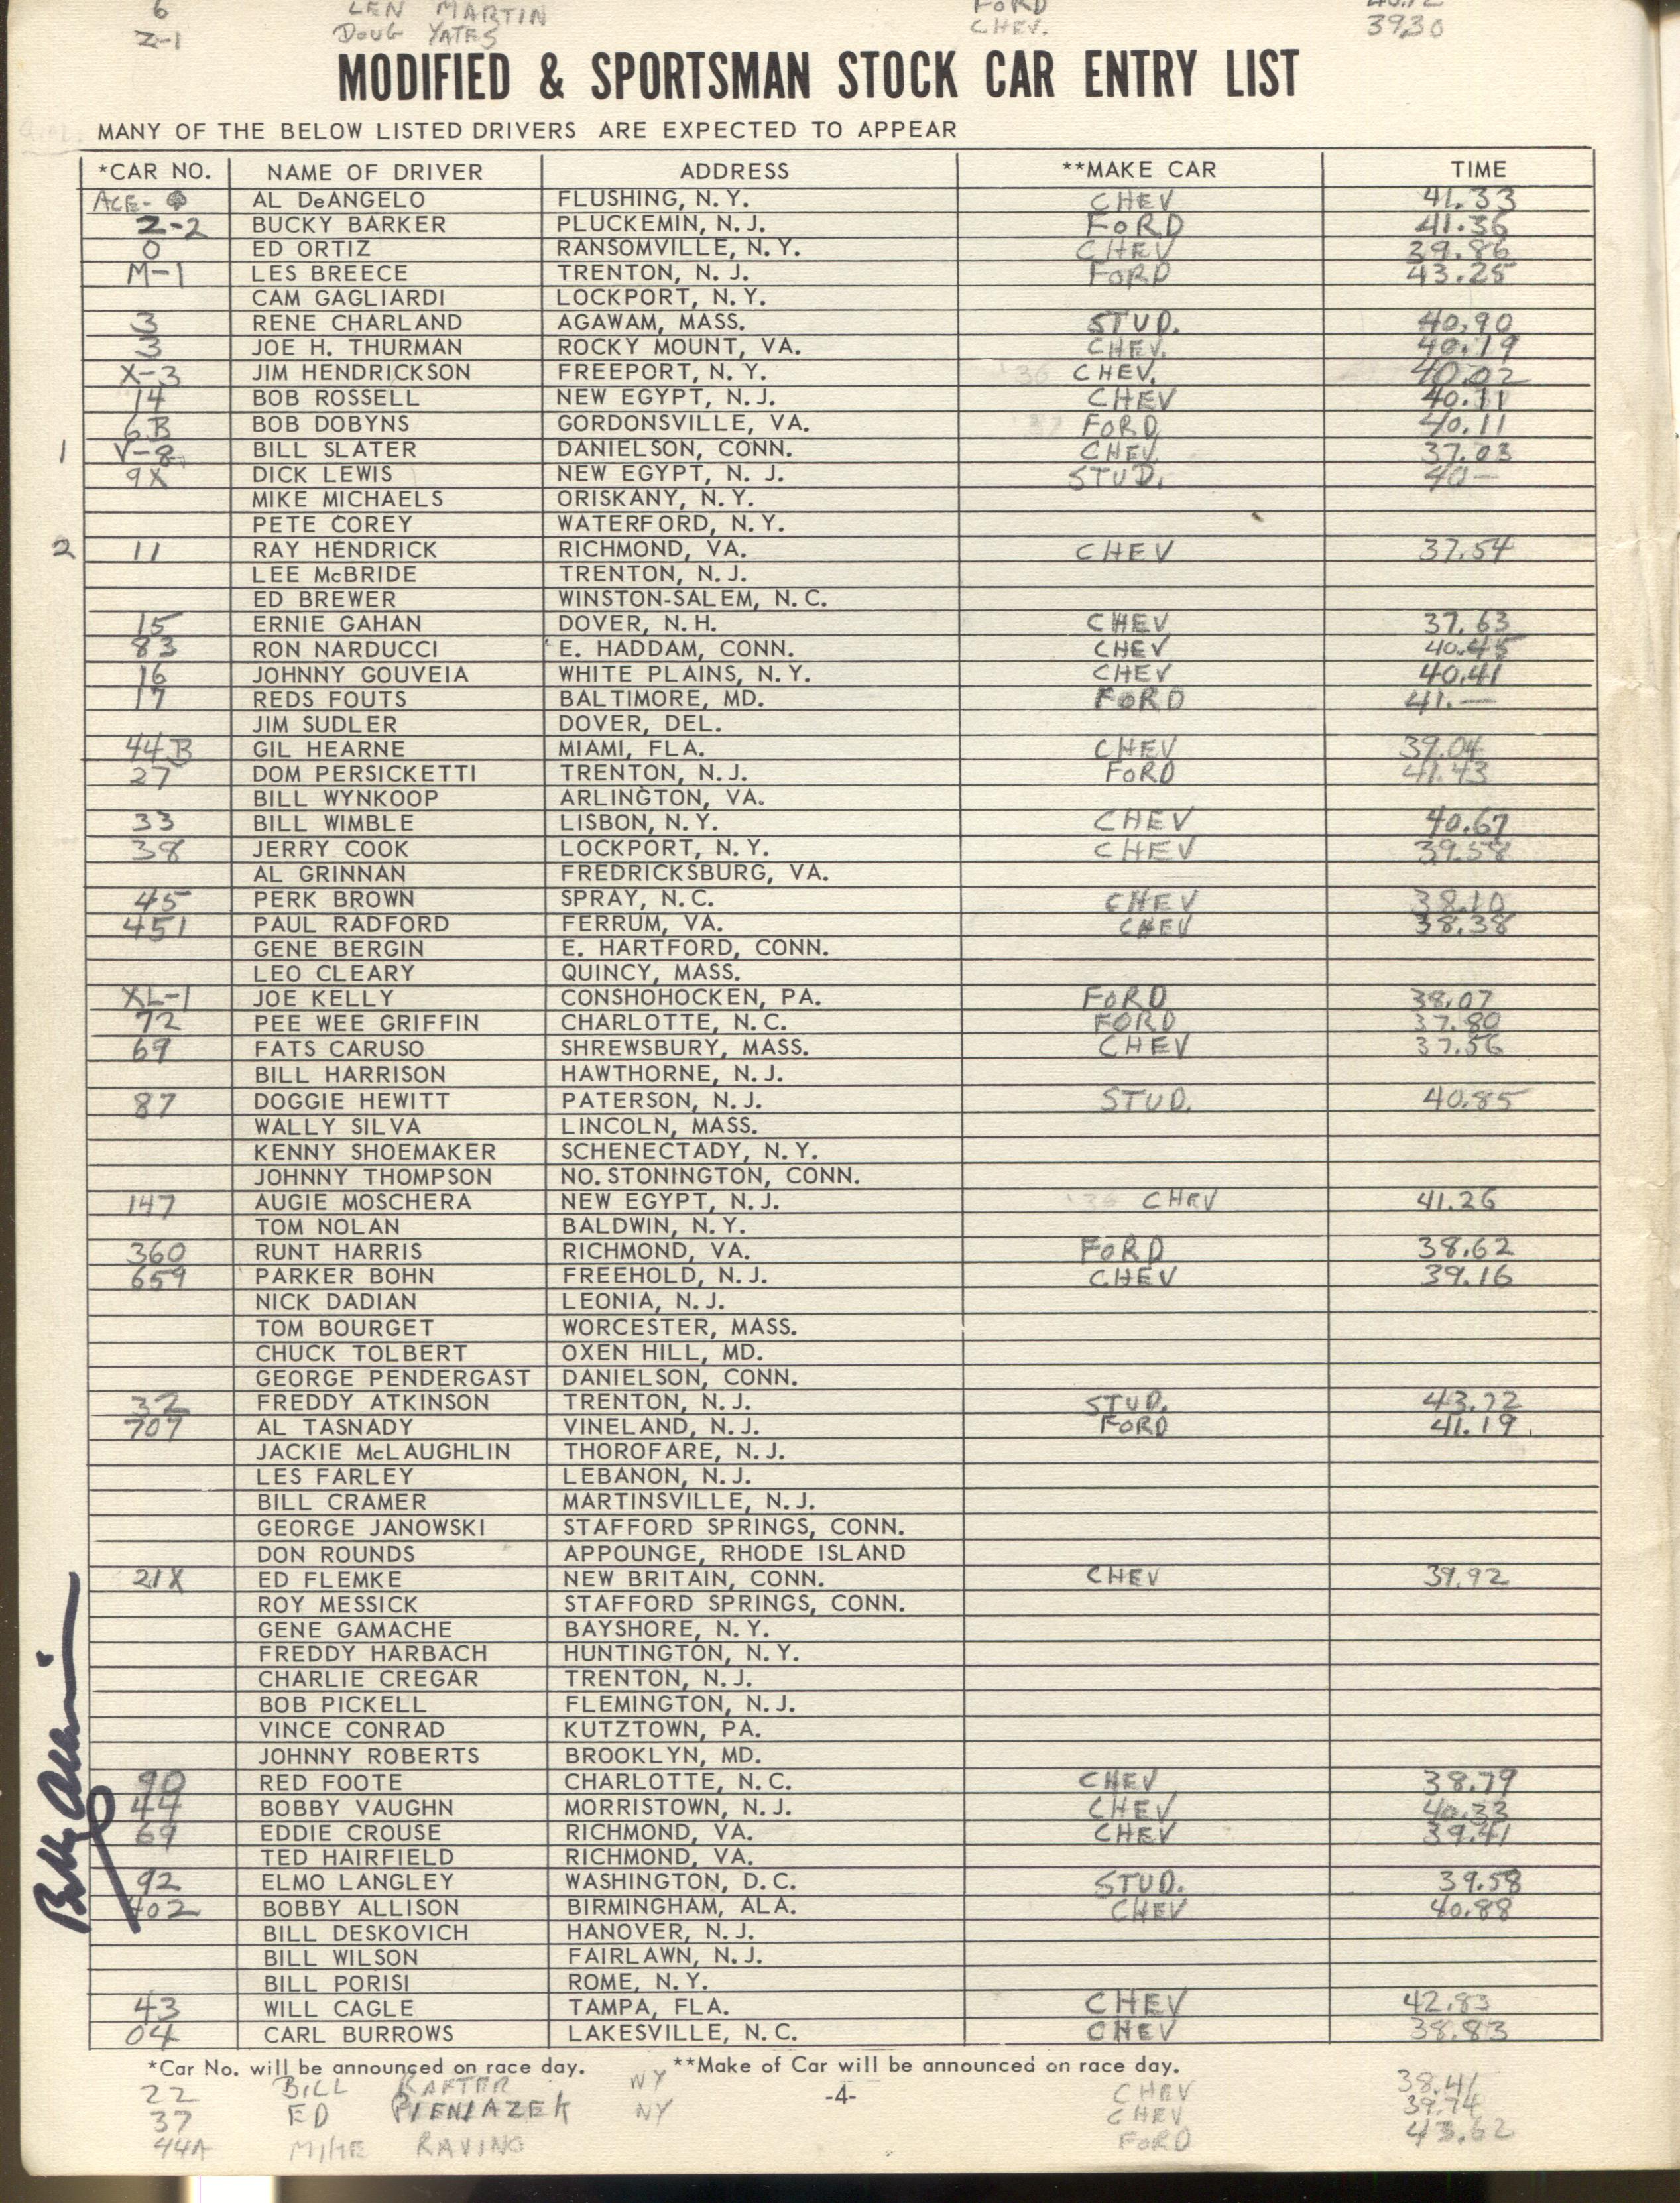 6 LEN MARTIN FORD
Z-1 DOUG YATES CHEV. 39.30
MODIFIED & SPORTSMAN STOCK CAR ENTRY LIST
MANY OF THE BELOW LISTED DRIVERS ARE EXPECTED TO APPEAR
*CAR NO. NAME OF DRIVER ADDRESS **MAKE CAR TIME
ACE- AL DeANGELO FLUSHING, N.Y. CHEV 41.33
Z-2 BUCKY BARKER PLUCKEMIN, N.J. FORD 41.36
0 ED ORTIZ RANSOMVILLE, N.Y. CHEV 39.86
M-1 LES BREECE TRENTON, N.J. FORD 43.25
CAM GAGLIARDI LOCKPORT, N.Y.
3 RENE CHARLAND AGAWAM, MASS. STUD. 40.90
3 JOE H. THURMAN ROCKY MOUNT, VA. CHEV. 40.19
X-3 JIM HENDRICKSON FREEPORT, N.Y. '36 CHEV. 40.02
14 BOB ROSSELL NEW EGYPT, N.J. CHEV 40.11
6B BOB DOBYNS GORDONSVILLE, VA. '37 FORD 40.11
1 V-8 BILL SLATER DANIELSON, CONN. CHEV. 37.03
9X DICK LEWIS NEW EGYPT, N.J. STUD. 40—
MIKE MICHAELS ORISKANY, N.Y.
PETE COREY WATERFORD, N.Y.
2 11 RAY HENDRICK RICHMOND, VA. CHEV 37.54
LEE McBRIDE TRENTON, N.J.
ED BREWER WINSTON-SALEM, N.C.
15 ERNIE GAHAN DOVER, N.H. CHEV 37.63
83 RON NARDUCCI E. HADDAM, CONN. CHEV 40.45
16 JOHNNY GOUVEIA WHITE PLAINS, N.Y. CHEV 40.41
17 REDS FOUTS BALTIMORE, MD. FORD 41.—
JIM SUDLER DOVER, DEL.
44B GIL HEARNE MIAMI, FLA. CHEV 39.04
27 DOM PERSICKETTI TRENTON, N.J. FORD 41.43
BILL WYNKOOP ARLINGTON, VA.
33 BILL WIMBLE LISBON, N.Y. CHEV 40.67
38 JERRY COOK LOCKPORT, N.Y. CHEV 39.58
AL GRINNAN FREDRICKSBURG, VA.
45 PERK BROWN SPRAY, N.C. CHEV 38.10
451 PAUL RADFORD FERRUM, VA. CHEV 38.38
GENE BERGIN E. HARTFORD, CONN.
LEO CLEARY QUINCY, MASS.
XL-1 JOE KELLY CONSHOHOCKEN, PA. FORD 38.07
72 PEE WEE GRIFFIN CHARLOTTE, N.C. FORD 37.80
69 FATS CARUSO SHREWSBURY, MASS. CHEV 37.56
BILL HARRISON HAWTHORNE, N.J.
87 DOGGIE HEWITT PATERSON, N.J. STUD. 40.85
WALLY SILVA LINCOLN, MASS.
KENNY SHOEMAKER SCHENECTADY, N.Y.
JOHNNY THOMPSON NO. STONINGTON, CONN.
147 AUGIE MOSCHERA NEW EGYPT, N.J. '36 CHEV 41.26
TOM NOLAN BALDWIN, N.Y.
360 RUNT HARRIS RICHMOND, VA. FORD 38.62
659 PARKER BOHN FREEHOLD, N.J. CHEV 39.16
NICK DADIAN LEONIA, N.J.
TOM BOURGET WORCESTER, MASS.
CHUCK TOLBERT OXEN HILL, MD.
GEORGE PENDERGAST DANIELSON, CONN.
32 FREDDY ATKINSON TRENTON, N.J. STUD. 43.72
707 AL TASNADY VINELAND, N.J. FORD 41.19
JACKIE McLAUGHLIN THOROFARE, N.J.
LES FARLEY LEBANON, N.J.
BILL CRAMER MARTINSVILLE, N.J.
GEORGE JANOWSKI STAFFORD SPRINGS, CONN.
DON ROUNDS APPOUNGE, RHODE ISLAND
21X ED FLEMKE NEW BRITAIN, CONN. CHEV 39.92
ROY MESSICK STAFFORD SPRINGS, CONN.
GENE GAMACHE BAYSHORE, N.Y.
FREDDY HARBACH HUNTINGTON, N.Y.
CHARLIE CREGAR TRENTON, N.J.
BOB PICKELL FLEMINGTON, N.J.
VINCE CONRAD KUTZTOWN, PA.
JOHNNY ROBERTS BROOKLYN, MD.
90 RED FOOTE CHARLOTTE, N.C. CHEV 38.79
44 BOBBY VAUGHN MORRISTOWN, N.J. CHEV 40.33
69 EDDIE CROUSE RICHMOND, VA. CHEV 39.41
TED HAIRFIELD RICHMOND, VA.
92 ELMO LANGLEY WASHINGTON, D.C. STUD. 39.58
402 BOBBY ALLISON BIRMINGHAM, ALA. CHEV 40.88
BILL DESKOVICH HANOVER, N.J.
BILL WILSON FAIRLAWN, N.J.
BILL PORISI ROME, N.Y.
43 WILL CAGLE TAMPA, FLA. CHEV 42.83
04 CARL BURROWS LAKESVILLE, N.C. CHEV 38.83
*Car No. will be announced on race day. **Make of Car will be announced on race day.
22 BILL RAFTER NY CHEV 38.41
-4-
37 ED PIENIAZEK NY CHEV 39.74
44A MIKE RAVINO FORD 43.62
Bobby Allison